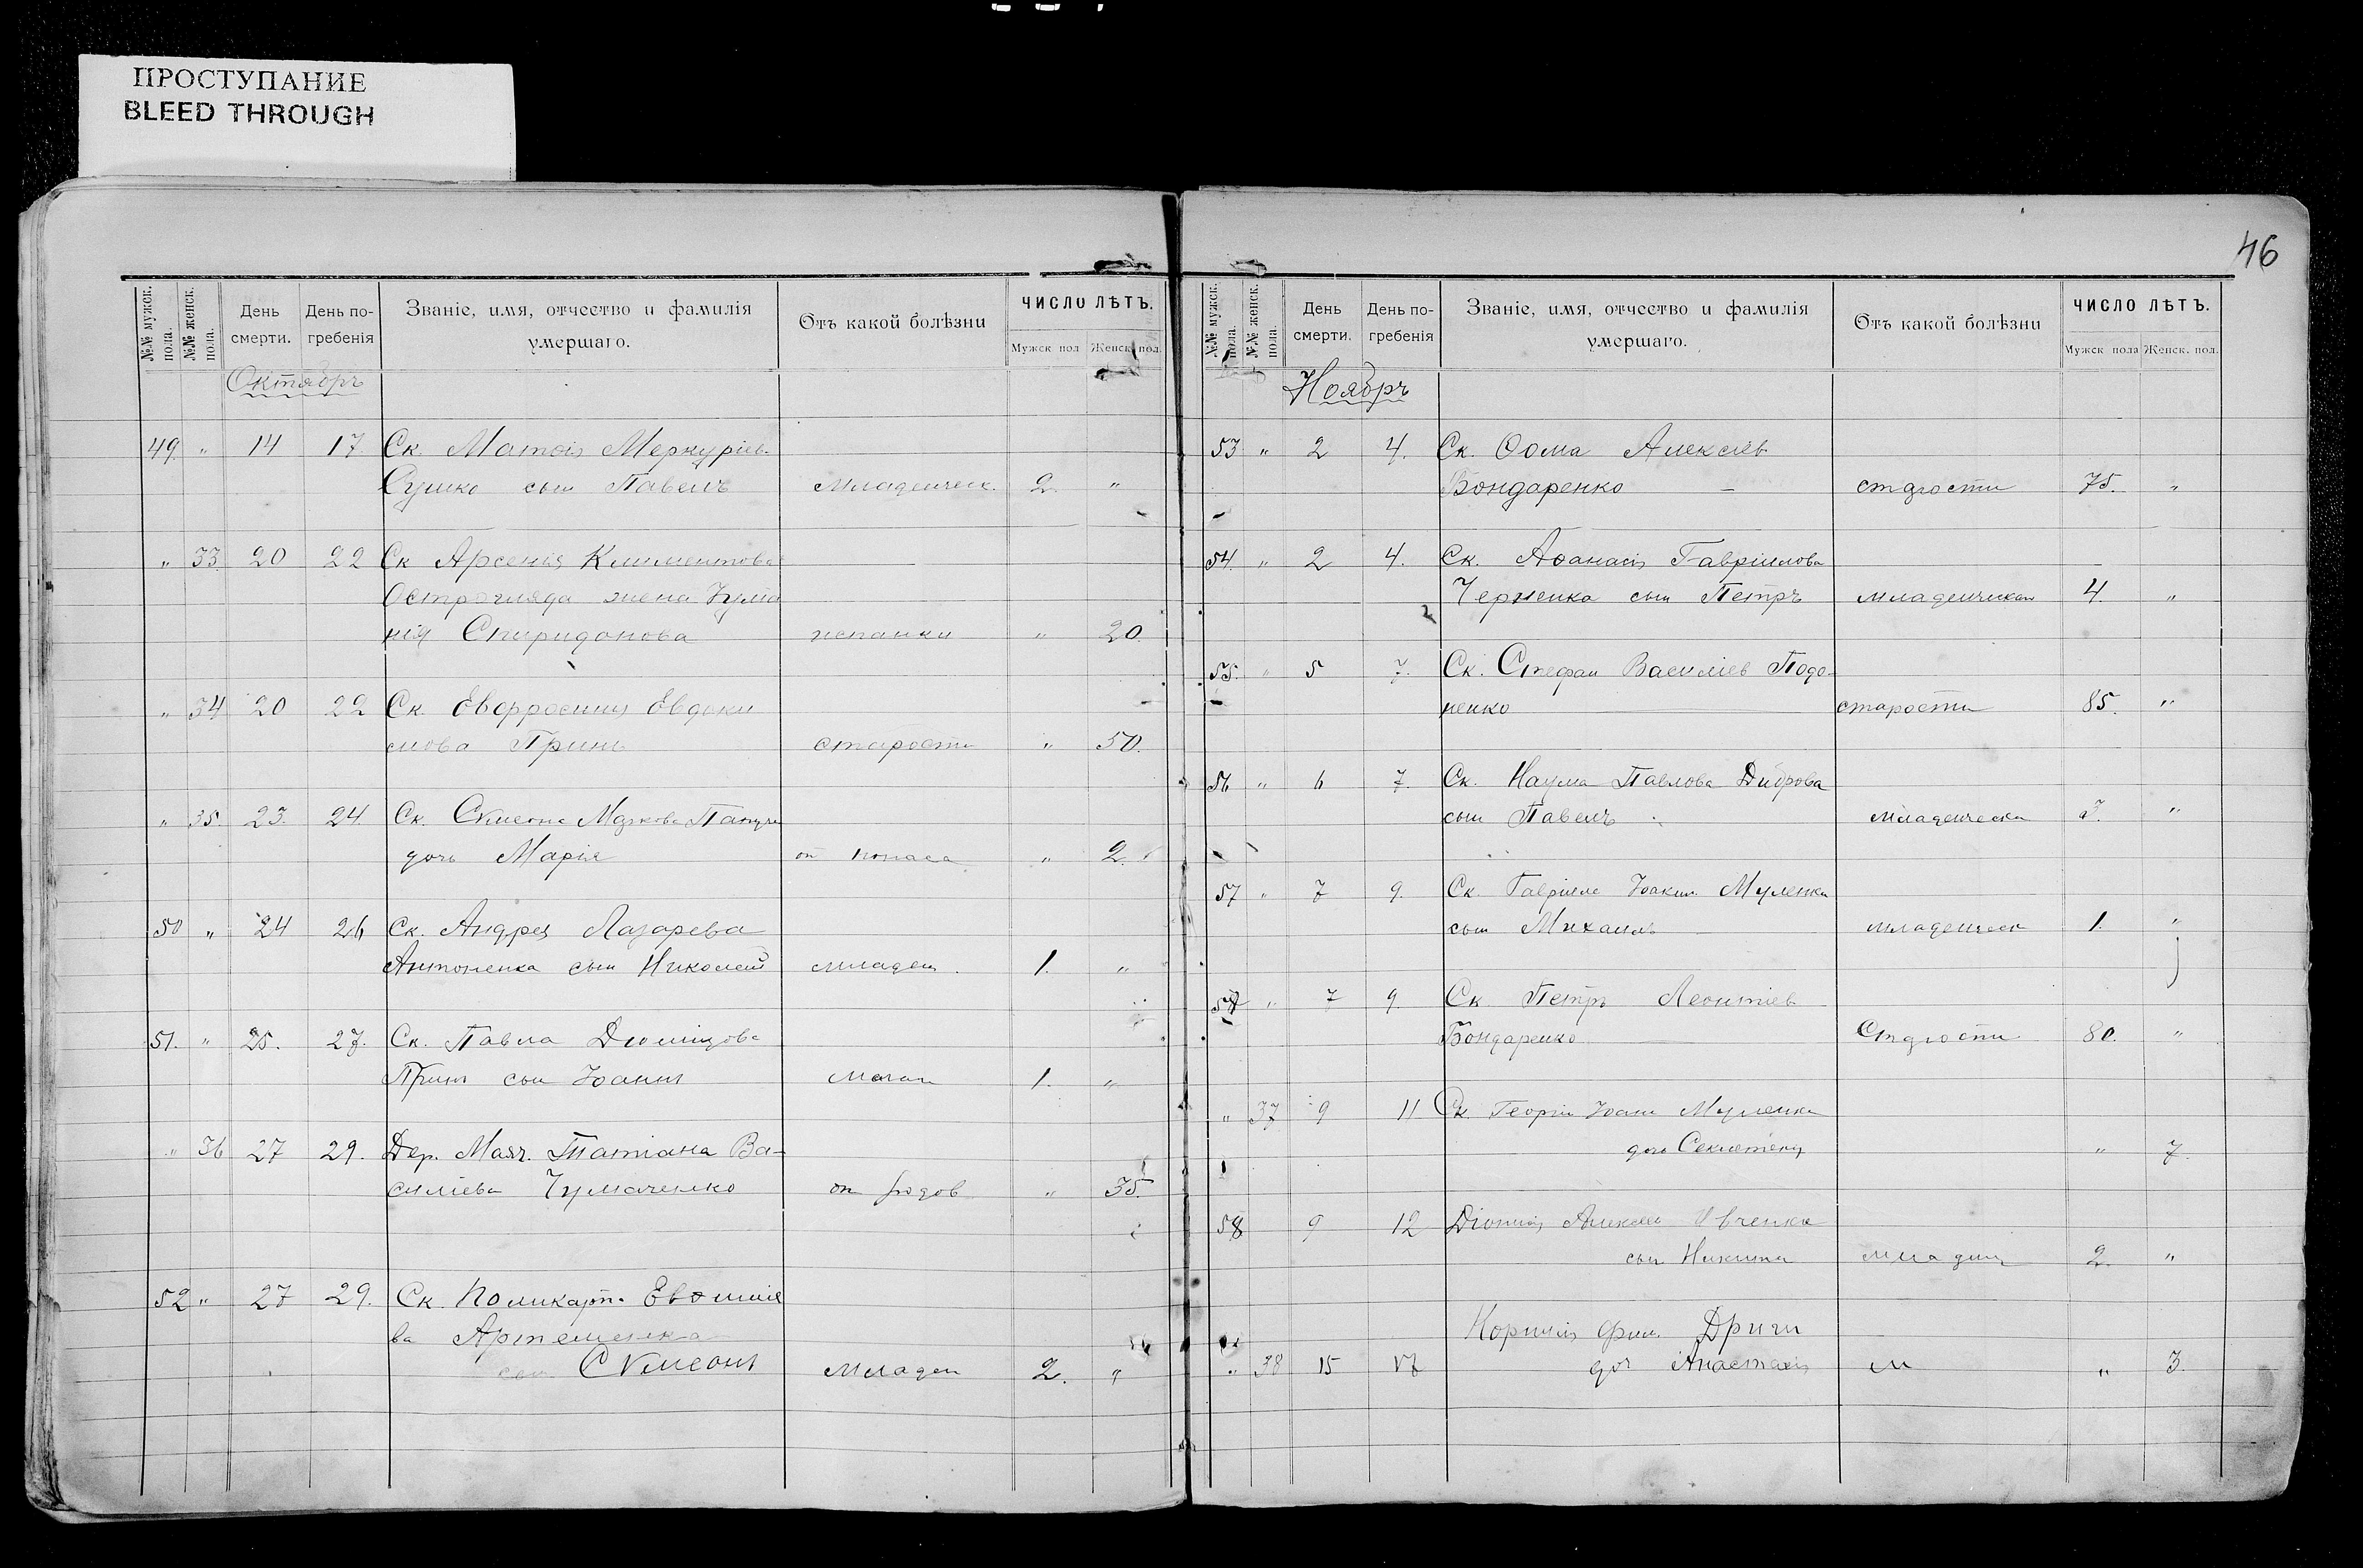 ПРОСТУПАНИЕ
BLEED THROUGH
46
№№ мужск. пола.
№№ женск. пола.
День смерти.
День по-гребенія
Званіе, имя, отчество и фамилія умершаго.
Отъ какой болѣзни
ЧИСЛО ЛѢТЪ.
Мужск пол
Женск. пол.
Октябрь
49. " 14 17. Ск. Матѳія Меркуріев.
Сушко сын Павелъ младенческ. 2. "
" 33. 20 22 Ск Арсенія Климентова
Остро жена Іулиа
нія Спиридонова испанки " 20.
" 34 20 22 Ск. Евфросинія Евдоки
мова Гринь старости " 50.
" 35. 23. 24. Ск. Сѵмеона Маркова
дочь Марія от поноса " 2.
50 " 24 26 Ск. Андрея Лазарева
Антоненка сын Николай младен. 1. "
51. " 25. 27. Ск. Павла
Гринь сын Іоаннъ 1. "
" 36 27 29. Дер. Маяч. Татіана Ва-
силіева Чумаченко от родов " 35.
52 " 27 29. Ск. Поликарп. Евѳиміе
ва Артеменка
сын Сѵмеонъ младен 2. "
№№ мужск. пола.
№№ женск. пола.
День смерти.
День по-гребенія
Званіе, имя, отчество и фамилія умершаго.
Отъ какой болѣзни
ЧИСЛО ЛѢТЪ.
Мужск пола
Женск. пол.
Ноябрь
53 " 2 4. Ск. Ѳома Алексіев
Бондаренко — старости 75. "
54. " 2 4. Ск. Аѳанасія Гавріилова
Черненка сын Петръ младенческая 4. "
55. " 5 7. Ск. Стефан Василіев Подо-
ненко старости 85. "
56 " 6 7. Ск. Наума Павлова Диброва
сын Павелъ младенческа 3. "
57 " 7 9. Ск. Гавріила Іоаким. Муленка
сын Михаилъ младенческ 1. "
" 7 9. Ск. Петръ Леонтіев
Бондаренко Старости 80. "
" 37 9 11 Ск. Георгія Іоан Муленка
дочь " 7.
58 9 12 Діонисія Алексіев Ивченка
сын Никита младен 2. "
Корнилія Фил. Дриги
" 38 15 17 доч Анастасія м " 3.